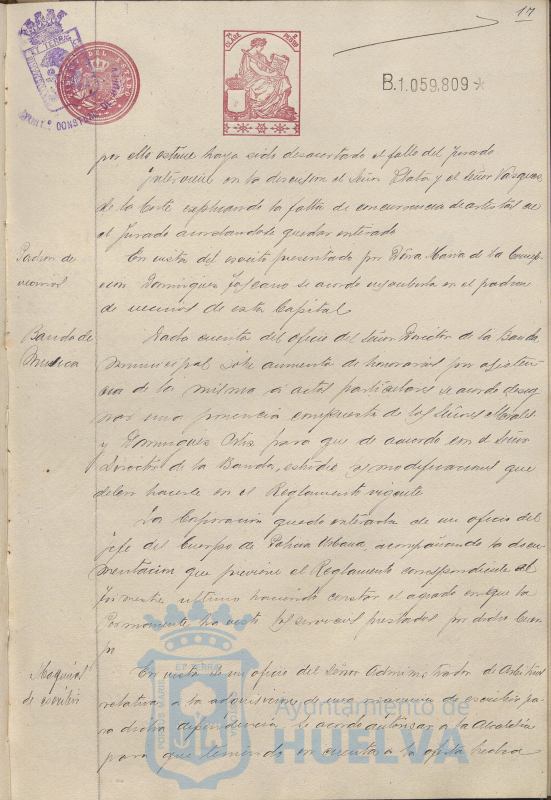 17
B.1.059.809
por ello estime haya sido desacertado el fallo del Jurado
Interviene en la discusion el Señor Plata y el Señor Vazquez
de la Corte explicando la falta de concurrencia de artistas en
el Jurado acordandose quedar enterado
Padron de
vecinos
En vista del escrito presentado por Doña Maria de la Concep-
cion Dominguez Toscano se acordo inscribirla en el padron
de vecinos de esta Capital
Banda de
Musica
Dada cuenta del oficio del Señor Director de la Banda
municipal sobre aumento de honorarios por asisten-
cia de la misma a actos particulares se acordo desig-
nar una ponencia compuesta de los Señores Morales
y Dominguez Ortiz para que de acuerdo con el Señor
Director de la Banda, estudie las modificaciones que
deben hacerse en el Reglamento vigente
La Corporacion quedo enterada de un oficio del
Jefe del Cuerpo de Policia Urbana, acompañando la docu-
mentacion que previene el Reglamento correspondiente al
trimestre ultimo haciendo constar el agrado con que la
Permanente ha visto los servicios prestados por dicho Cuer-
po
Maquina
de escribir
En vista de un oficio del Señor Administrador de Arbitrios
relativo a la adquisicion de una maquina de escribir pa-
ra dicha dependencia se acordo autorizar a la Alcaldia
para que teniendo en cuenta a la oferta hecha
Ayuntamiento de
HUELVA